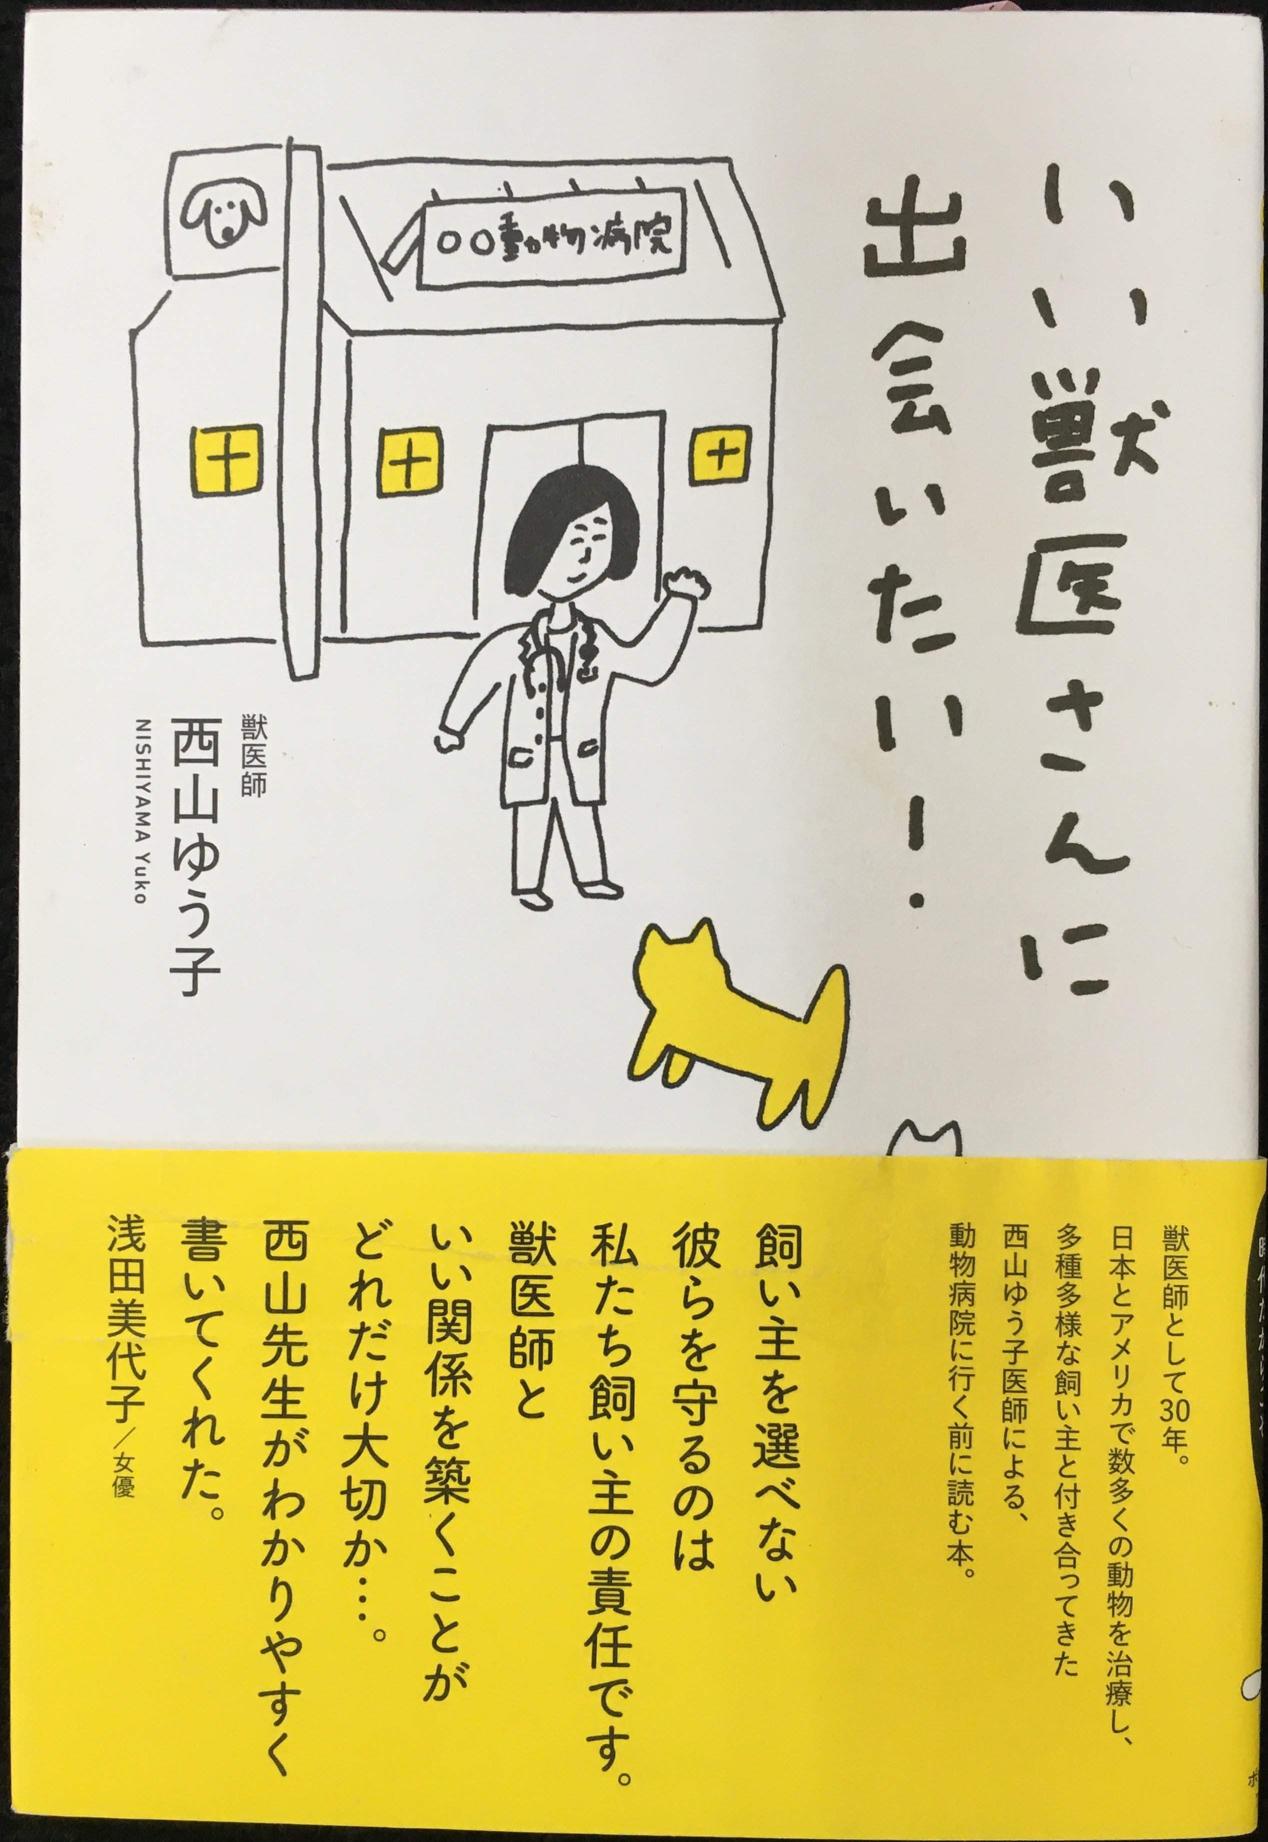 いい獣医さんに
出会いたい！
○○動物病院
獣医師
西山ゆう子
NISHIYAMA Yuko
獣医師として30年。
日本とアメリカで数多くの動物を治療し、
多種多様な飼い主と付き合ってきた
西山ゆう子医師による、
動物病院に行く前に読む本。
飼い主を選べない
彼らを守るのは
私たち飼い主の責任です。
獣医師と
いい関係を築くことが
どれだけ大切か…。
西山先生がわかりやすく
書いてくれた。
浅田美代子／女優